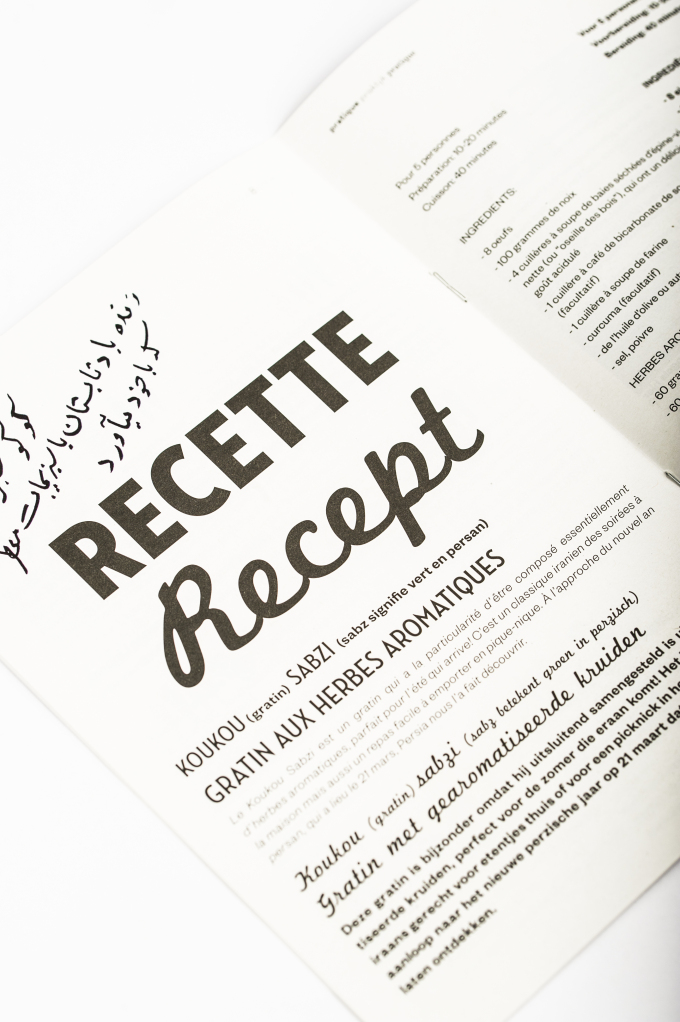 زنده باد تابستان با سبزیجات
که با خود میآورد
RECETTE
Recept
KOUKOU (gratin) SABZI (sabz signifie vert en persan)
GRATIN AUX HERBES AROMATIQUES
Le Koukou Sabzi est un gratin qui a la particularité d'être composé essentiellement
d'herbes aromatiques, parfait pour l'été qui arrive! C'est un classique iranien des soirées à
la maison mais aussi un repas facile à emporter en pique-nique. À l'approche du nouvel an
persan, qui a lieu le 21 mars, Persia nous l'a fait découvrir.
Koukou (gratin) sabzi (sabz betekent groen in perzisch)
Gratin met gearomatiseerde kruiden
Deze gratin is bijzonder omdat hij uitsluitend samengesteld is
tiseerde kruiden, perfect voor de zomer die eraan komt! Het
iraans gerecht voor etentjes thuis of voor een picknick in
aanloop naar het nieuwe perzische jaar op 21 maart
laten ontdekken.
pratique pratique
Pour 5 personnes
Préparation: 10-20 minutes
Cuisson: 40 minutes
INGREDIENTS:
- 8 oeufs
- 100 grammes de noix
- 4 cuillères à soupe de baies séchées d'épine-vi
nette (ou "oseille des bois"), qui ont un délic
goût acidulé
- 1 cuillère à café de bicarbonate de
(facultatif)
- 1 cuillère à soupe de farine
- curcuma (facultatif)
- de l'huile d'olive ou
- sel, poivre
HERBES
- 60
- 60
Voor 5
Voorbereiding: 10
Bereiding: 40